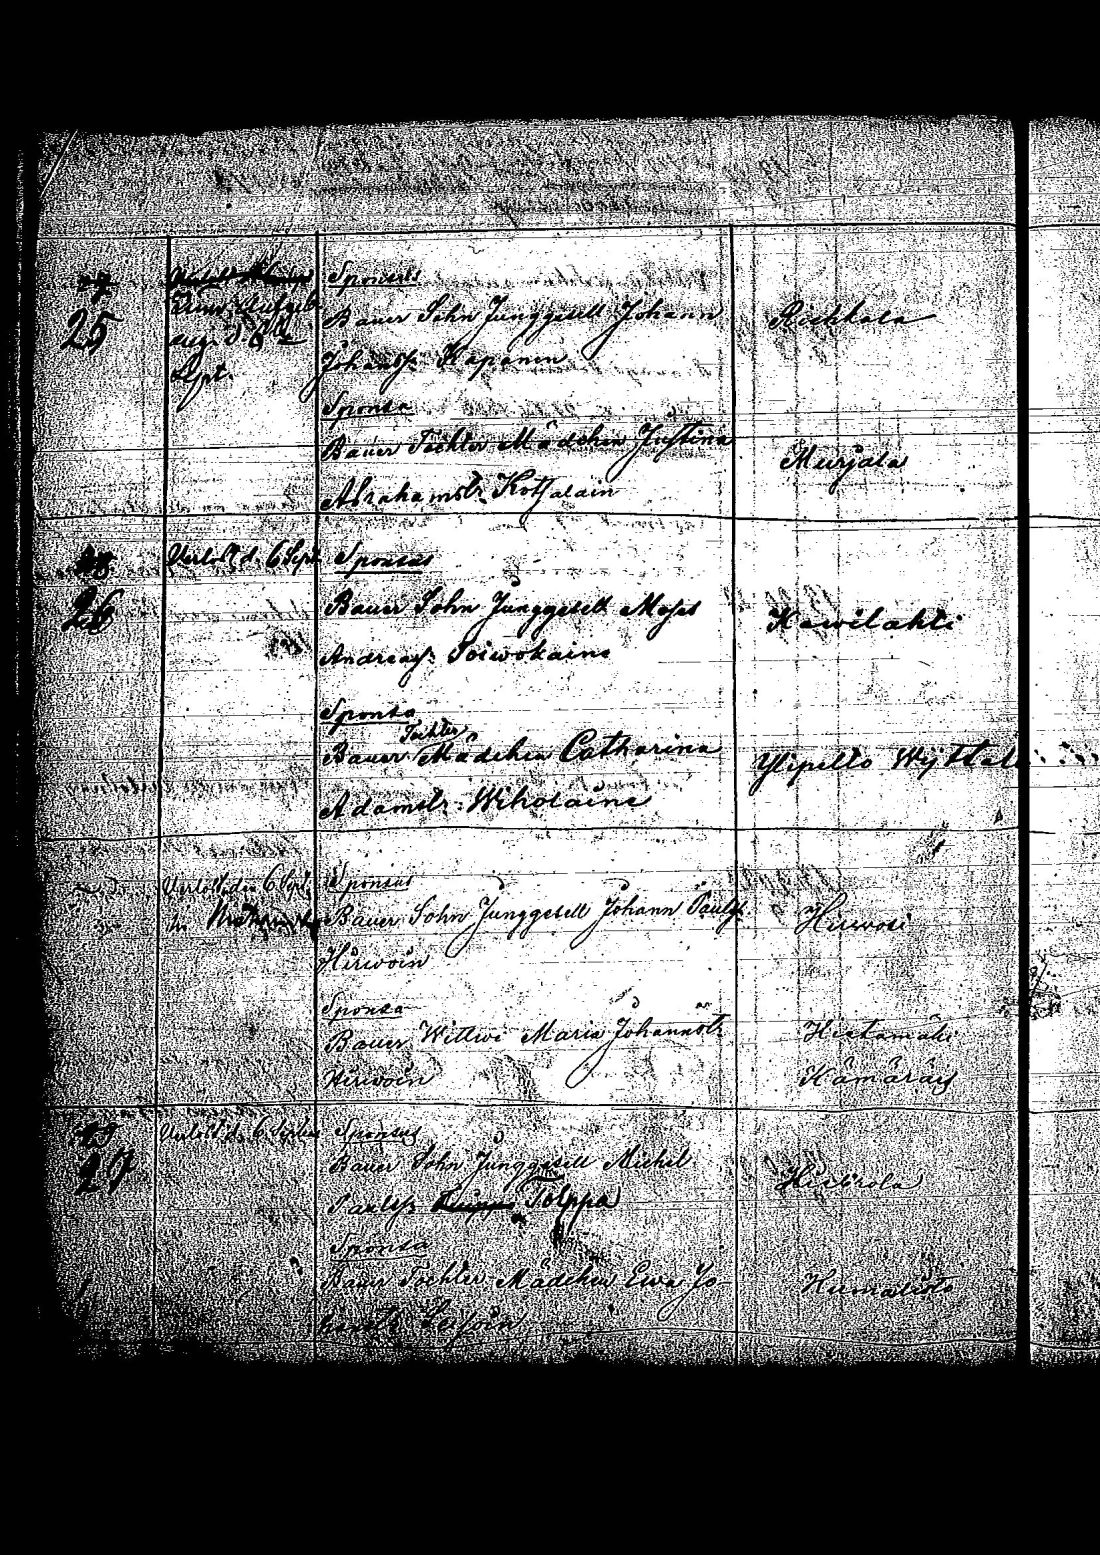 25
Sept.
Sponsus
Bauer Sohn Junggesell Johann
Johanss: Kaponen
Rickkala
Sponsa
Bauer Tochter Mädchen Justina
Abrahamstr. Kotjalain
Murjala
26
Verlobt d. 6 Sept.
Sponsus
Bauer Sohn Junggesell Moses
Andreass: Toiwokaine
Kawilahti
Sponsa
Tochter
Bauer Mädchen Catharina
Adamstr: Wiholaine
Ylipelto
Verlobt den 6 Sept.
Sponsus
Bauer Sohn Junggesell Johann Paulss
Hirwoin
Hirwosi
Sponsa
Bauer Wittwe Maria Johannstr
Hirwoin
Hietamäki
Kämäräis
27
Verlobt d. 6 Septbr
Sponsus
Bauer Sohn Junggesell Michel
Paulss Tolppa
Sponsa
Bauer Tochter Mädchen Ewa Jo